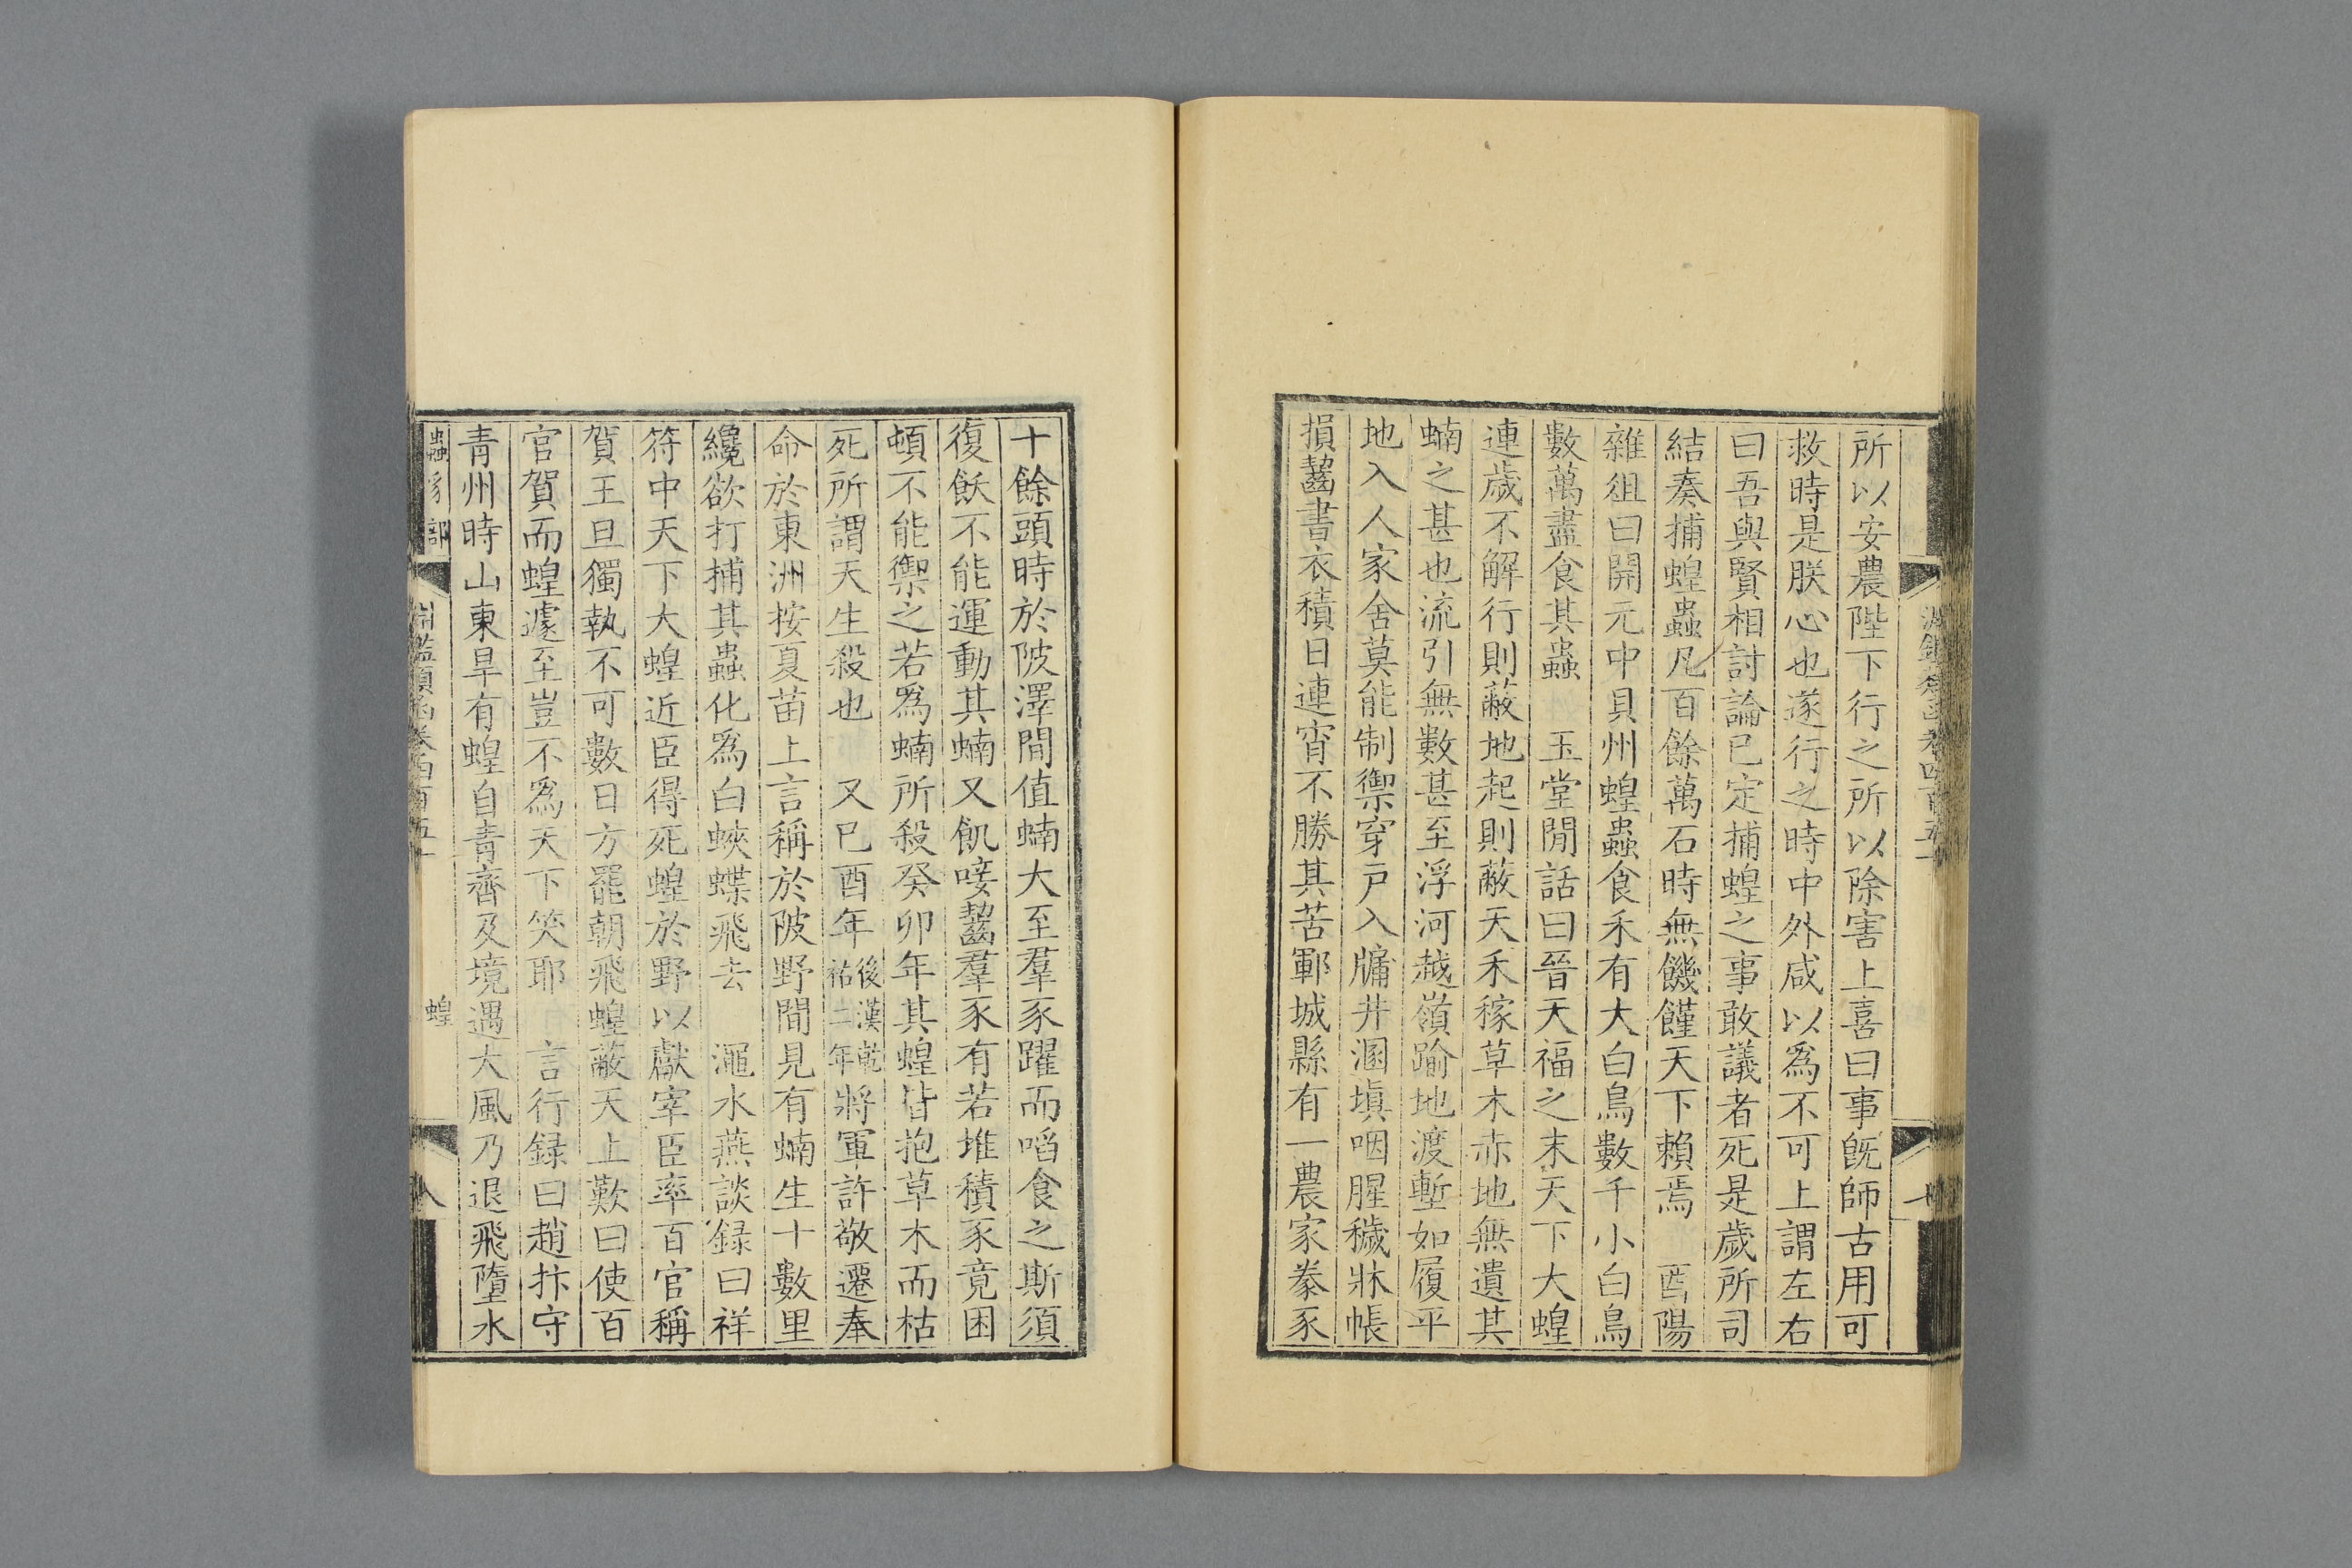 所以安農陛下行之所以除害上喜曰事旣師古用可
救時是朕心也遂行之時中外咸以爲不可上謂左右
曰吾與賢相討論已定捕蝗之事敢議者死是歲所司
結奏捕蝗蟲凡百餘萬石時無饑饉天下賴焉　酉陽
雜俎曰開元中貝州蝗蟲食禾有大白鳥數千小白鳥
數萬盡食其蟲　玉堂閒話曰晉天福之末天下大蝗
連歲不解行則蔽地起則蔽天禾稼草木赤地無遺其
蝻之甚也流引無數甚至浮河越嶺踰地渡塹如履平
地入人家舍莫能制禦穿戸入牖井溷塡咽腥穢牀帳
損齧書衣積日連宵不勝其苦鄆城縣有一農家豢豕
十餘頭時於陂澤間值蝻大至羣豕躍而啗食之斯須
復飫不能運動其蝻又飢唼齧羣豕有若堆積豕竟困
頓不能禦之若爲蝻所殺癸卯年其蝗皆抱草木而枯
死所謂天生殺也　又已酉年後漢乾祐二年將軍許敬遷奉
命於東洲按夏苗上言稱於陂野間見有蝻生十數里
纔欲打捕其蟲化爲白蛺蝶飛去　澠水燕談録曰祥
符中天下大蝗近臣得死蝗於野以獻宰臣率百官稱
賀王旦獨執不可數日方罷朝飛蝗蔽天上歎曰使百
官賀而蝗遽至豈不爲天下笑耶　言行録曰趙抃守
青州時山東旱有蝗自青齊及境遇大風乃退飛墮水
蟲豸部
淵鑑類函卷四百五十
蝗
八